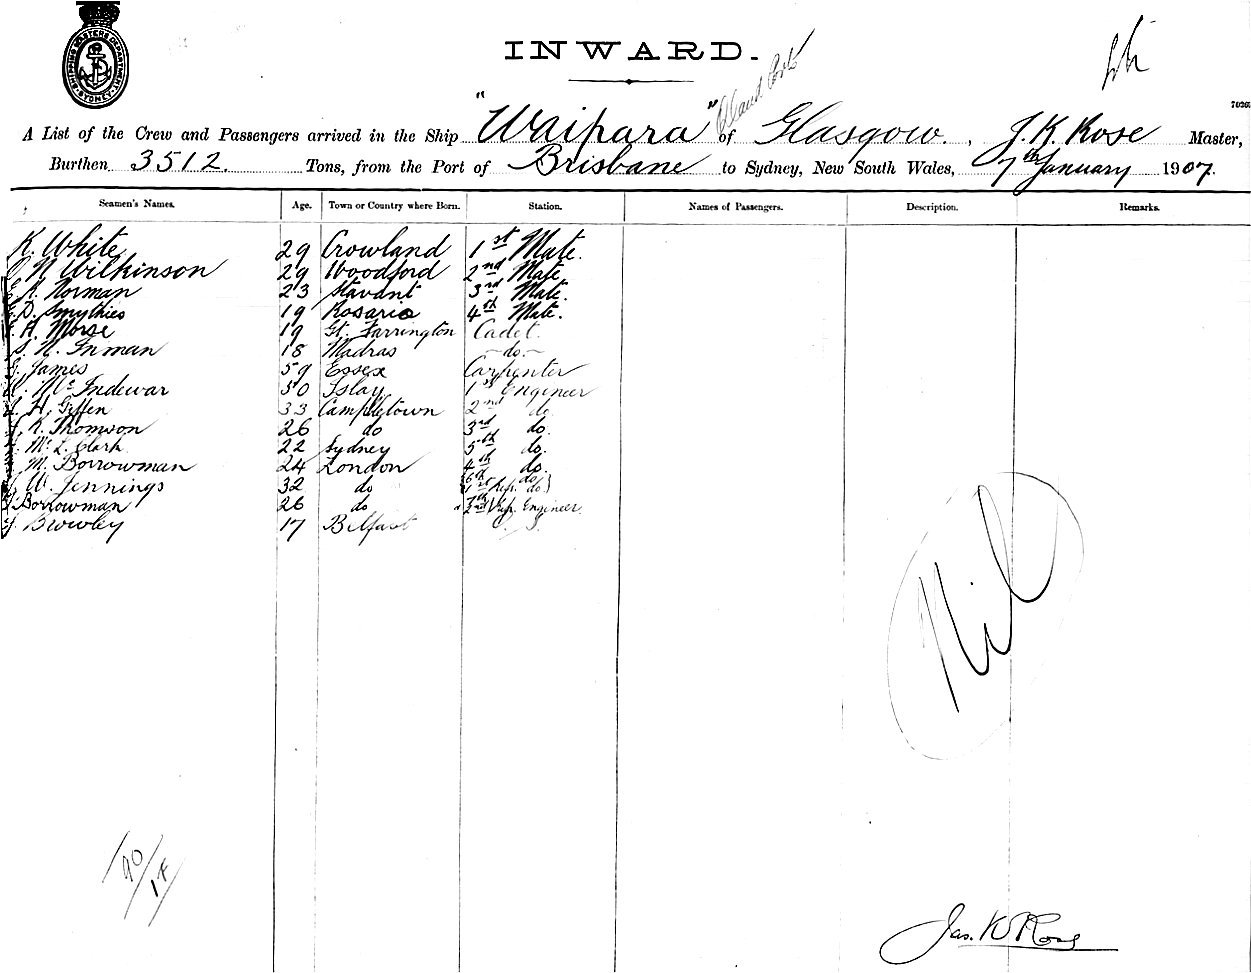 SHIPPING MASTERS DEPARTMENT SYDNEY
INWARD.
A List of the Crew and Passengers arrived in the Ship "Waipara" of Glasgow., J. K. Rose Master,
Burthen 3512. Tons, from the Port of Brisbane to Sydney, New South Wales, 7th January 1907.
Seamen's Names. Age. Town or Country where Born. Station. Names of Passengers. Description. Remarks.
K. White 29 Crowland 1st Mate.
N Wilkinson 29 Woodford 2nd Mate
Norman 23 3rd Mate.
D. Smythies 19 Rosario 4th Mate.
H. Morse 19 Gt. Farrington Cadet.
N. Inman 18 Madras -do.-
James 59 Essex Carpenter
Mc Indewar 30 Islay 1st Engineer
H. Giffen 33 Campletown 2nd do
K. Thomson 26 do 3rd do.
Mc L. Clark 22 Sydney 5th do.
M. Borrowman 24 London 4th do.
W. Jennings 32 do 6th do
1st Ref. do
Borrowman 26 do 7th
2nd Ref. Engineer.
Browley 17 Belfast
Nil
90/18
Jas. K Rose